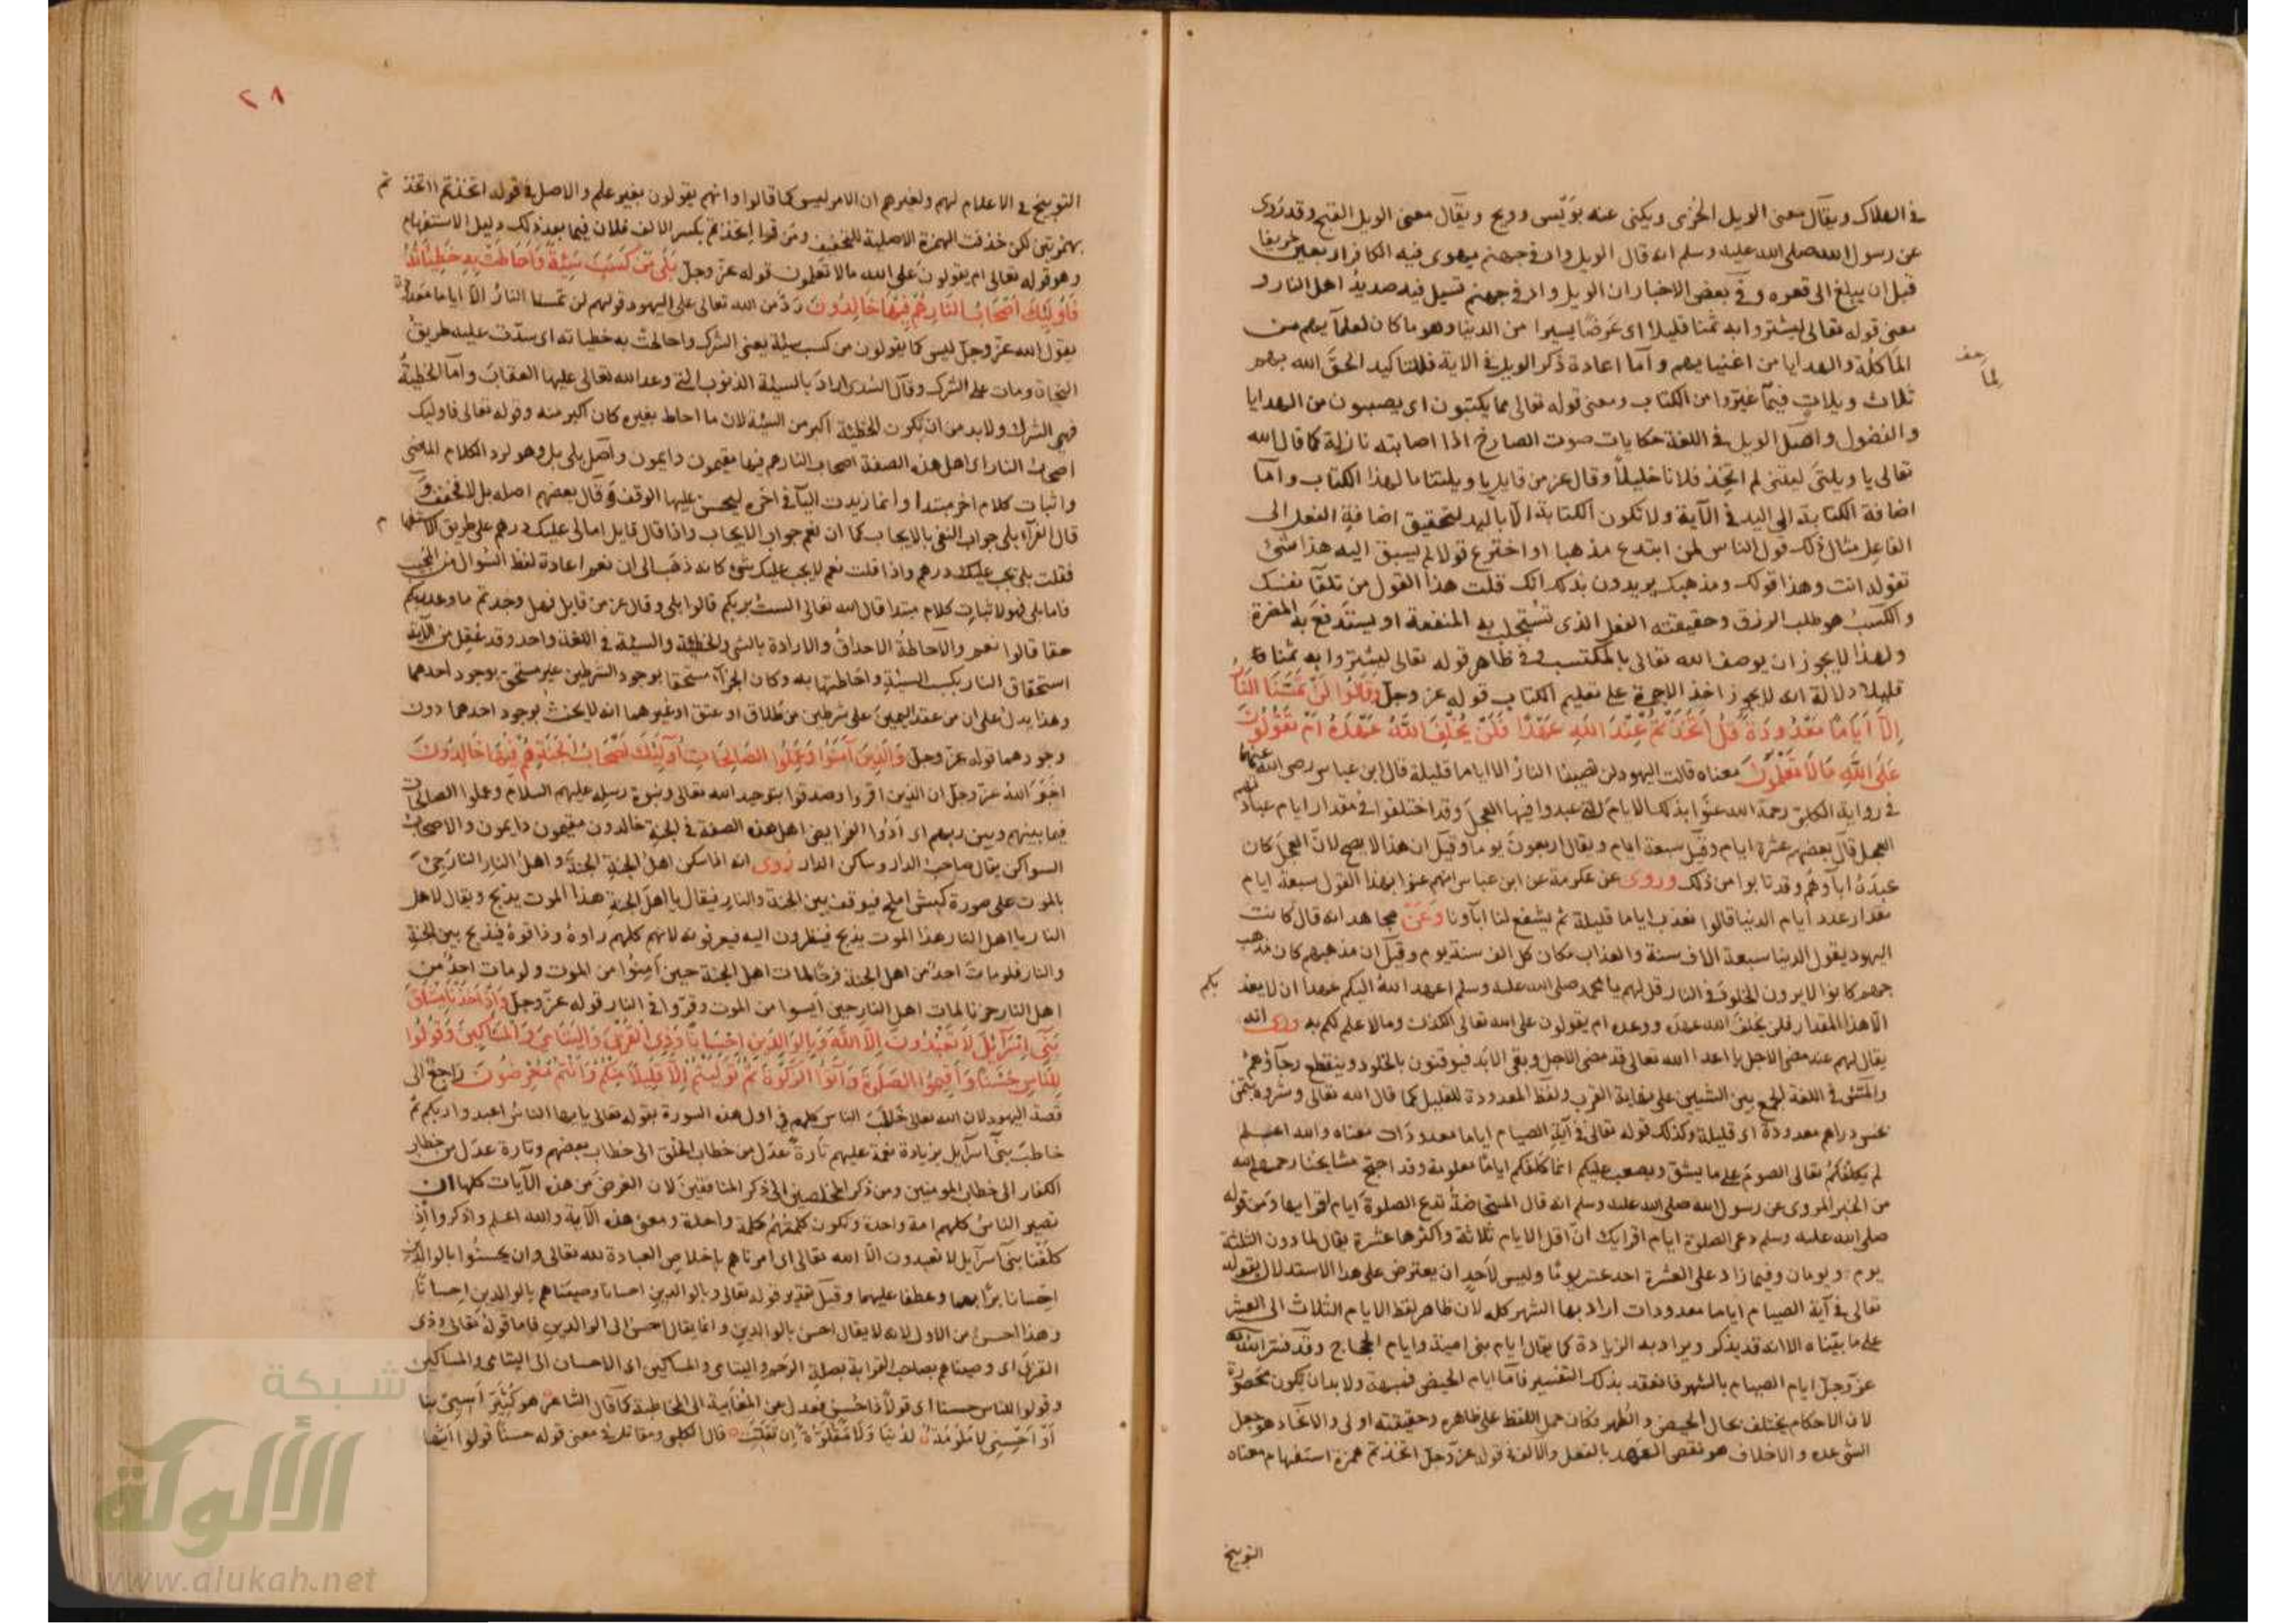 في الهلاك ويقال معنى الويل الخزى ويكنى عنه بوَيْس وويح ويقال معنى الويل القبح وقد رُوى
عن رسول الله صلى الله عليه وسلم انه قال الويل واد في جهنم يهوى فيه الكافر اربعين خريفا
قبل ان يبلغ الى قعره وفي بعض الاخبار ان الويل واد في جهنم تسيل فيه صديدُ اهل النار و
معنى قوله تعالى ليشتروا به ثمنا قليلا اى عَرَضًا يسيرا من الدنيا وهو ما كان لعلمآيهم من
المأكلة والهدايا من اغنيايهم وأمّا اعادة ذكر الويل في الاية فللتاكيد الحقَ الله بهم
لما
ثلاث ويلاتٍ فيمآ غيّروا من الكتاب ومعنى قوله تعالى مما يكتبون اى يصيبون من الهدايا
والفضول واصل الويل في اللغة حكايات صوت الصارخ اذا اصابته نازلة كما قال الله
تعالى يا ويلتى ليتنى لم اتخذ فلانا خليلاً وقال عز من قايل يا ويلتنا ما لهذا الكتاب وامّا
اضافة الكتابة الى اليد في الآية ولا تكون الكتابة الّا باليد لتحقيق اضافةِ الفعل الى
الفاعل مثال ذلك قول الناس لمن ابتدع مذهبا او اخترع قولا لم يسبق اليه هذا شئ
تقوله انت وهذا قولك ومذهبك يريدون بذلك انك قلت هذا القول من تلقآ نفسك
والكسْبُ هو طلب الرزق وحقيقته الفعل الذى تُستجلب به المنفعة او يستدفعَ به المضرة
ولهذا لا يجوز ان يوصف الله تعالى بالمكتسب وفي ظاهر قوله تعالى ليشتروا به ثمنا
قليلا دلالة انه لا يجوز اخذ الاجرة على تعليم الكتاب قوله عز وجلّ وَقَالُوا لَنْ تَمَسَّنَا النَّارُ
اِلَّا اَيَّامًا مَعْدُودَةً قُلْ اَتَّخَذْتُمْ عِنْدَ اللهِ عَهْدًا فَلَنْ يُخْلِفَ اللهُ عَهْدَهُ اَمْ تَقُولُونَ
عَلَى اللهِ مَا لَا تَعْلَمُونَ معناه قالت اليهود لن تصيبنا النارُ الا اياما قليلة قال ابن عباس رضى الله عنهما
في رواية الكلبى رحمة الله عنَوا بذلك الايام التى عبدوا فيها العجلَ وقد اختلفوا في مقدار ايام عبادتهم
العجل قال بعضهم عشرة ايام وقيل سبعة ايام ويقال اربعون يوما وقيل ان هذا لا يصح لانّ العجل كان
عبدَهُ اباؤهم وقد تابوا من ذلك وروى عن عكرمة عن ابن عباس انهم عنوا بهذا القول سبعة ايام
مقدار عدد ايام الدنيا قالوا نعذب اياما قليلة ثم يشفع لنا ابآؤنا وعَنْ مجاهد انه قال كانت
اليهود يقول الدنيا سبعة الاف سنة والعذاب مكان كل الف سنة يوم وقيل ان مذهبهم كان مذهب
جهم كانوا لا يرون الخلودَ في النار قل لهم يا محمد صلى الله عليه وسلم اعهد اللهُ اليكم عهدا ان لا يعذبكم
الّا هذا المقدار فلن يخلفَ الله عهده ووعده ام يقولون على الله تعالى الكذب وما لا علم لكم به وروى انه
يقال لهم عند مضى الاجل يا اعداء الله تعالى قد مضى الاجل وبقى الابَد فيوقنون بالخلود وينقطع رجآؤهم
والمَسُّ في اللغة الجمع بين الشيين على نهاية القرب ولفظ المعدودة للتقليل كما قال الله تعالى وشروه بثمن
بخس دراهم معدودة اى قليلة وكذلك قوله تعالى في آية الصيام اياما معدودات معناه والله اعلم
لم يكلفكم تعالى الصومَ على ما يشق ويصعب عليكم انما كلفكم اياما معلومة وقد احتج مشايخنا رحمهم الله
من الخبر المروى عن رسول الله صلى الله عليه وسلم انه قال المستحاضةُ تدع الصلوة ايام اقرايها ومن قوله
صلى الله عليه وسلم دعى الصلوة ايام اقرايك انّ اقل الايام ثلاثة واكثرها عشرة يقال لما دون الثلثة
يوم ويومان وفيما زاد على العشرة احد عشر يومًا وليس لاَحدٍ ان يعترض على هذا الاستدلال بقوله
تعالى في آية الصيام اياما معدودات اراد بها الشهر كله لان ظاهر لفظ الايام الثلاث الى العشر
على ما بيّناه الا انه قد يذكر ويراد به الزيادة كما يقال ايام بنى امية وايام الحجاج وقد فسّر الله
عزّ وجلّ ايام الصيام بالشهر فانعقد بذلك التفسير فامّا ايام الحيض فمبهمة ولا بد ان يكون محصورة
لان الاحكام يختلف بحال الحيض والطهر فكان حمل اللفظ على ظاهره وحقيقته اولى والاتخاذ هو جعل
الشى عده والاخلاف هو نقض العهد بالفعل والالف في قوله عزّ وجلّ اتخذتم همزة استفهام معناه
التوبيخ
٢٨
التوبيخ في الاعلام لهم ولغيرهم ان الامر ليس كما قالوا وانهم يقولون بغير علم والاصل في قوله اتخذتم ااتخذتم
بهمزتين لكن حذفت الهمزة الاصلية للتخفيف ومن قرا اتخذتم بكسر الالف فلان فيما بعد ذلك دليل الاستفهام
وهو قوله تعالى ام يقولون على الله ما لا تعلمون قوله عزّ وجلّ بَلَى مَنْ كَسَبَ سَيِّئَةً وَاَحَاطَتْ بِهِ خَطِيئَاتُهُ
فَاُولَئِكَ اَصْحَابُ النَّارِ هُمْ فِيهَا خَالِدُونَ ردّ من الله تعالى على اليهود قولهم لن تمسنا النارُ الّا اياما معدودة
يقول الله عزّ وجلّ ليس كما يقولون من كسب سيئة يعنى الشرك واحاطت به خطياته اى سدّت عليه طريقُ
النجاة ومات على الشرك وقال السُدى اراد بالسيئة الذنوب التى وعد الله تعالى عليها العقابَ وامّا الخطيةُ
فهى الشرك ولا بد من ان يكون الخطيئة اكبر من السيئة لان ما احاط بغيره كان اكبر منه وقوله تعالى فاوليك
اصحابُ النار اى اهل هذه الصفة اصحاب النار هم فيها مقيمون دايمون واصل بلى بل وهو لرد الكلام الماضى
واثبات كلام اخر مبتدا وانما زيدت اليآ في اخره ليحسن عليها الوقف وقال بعضهم اصله بل لا فخفف و
قال الفرآء بلى جواب النفى بالايجاب كما ان نعم جواب الايجاب واذا قال قايل امالى عليك درهم على طريق الاستفهام
فقلت بلى يجب عليك درهم واذا قلت نعم لا يجب عليك شئ كانه ذهَب الى ان نعم اعادة لفظ السُوال من المجيب
فاما بلى فهو لاثبات كلام مبتدا قال الله تعالى الستُ بربكم قالوا بلى وقال عز من قايل فهل وجدتم ما وعد ربكم
حقا قالوا نعم والاحاطةُ الاحداقُ والارادة بالشى والخطيّة والسيئة في اللغة واحد وقد عُقِل من الآية
استحقاق النار بكسب السيئة واحَاطتها به وكان الجزآء مستحقا بوجود الشرطين غير مستحق بوجود احدهما
وهذا يدل على ان من عقد اليمينَ على شرطين من طلاق او عتق او غيرهما انه لا يحنث بوجود احدهما دون
وجودهما قوله عزّ وجلّ وَالَّذِينَ آمَنُوا وَعَمِلُوا الصَّالِحَاتِ اُولَئِكَ اَصْحَابُ الْجَنَّةِ هُمْ فِيهَا خَالِدُونَ
اخبَرَ اللهُ عزّ وجلّ ان الذين اقروا وصدقوا بتوحيد الله تعالى ونبوة رسله عليهم السلام وعملوا الصالحات
فيما بينهم وبين ربهم اى اَدَّوا الفرايض اهل هذه الصفة في الجنة خالدون مقيمون دايمون والاصحاب
السواكن يقال صاحب الدار وساكن الدار رُوى انه اذا سكن اهلُ الجنةِ الجنةَ واهلُ النار النارَ جئ
بالموت على صورة كبش املح فيوقف بين الجنة والنار فيقال يا اهلَ الجنةِ هذا الموت يذبح ويقال لاهل
النار يا اهل النار هذا الموت يذبح فينظرون اليه فيعرفونه لانهم كلهم راوهُ وذاقوهُ فيذبح بين الجنةِ
والنار فلو ماتَ احدٌ من اهل الجنة فرحًا لمات اهل الجنة حين اَمِنُوا من الموت ولو مات احدٌ من
اهل النار حزنا لمات اهل النار حين ايسوا من الموت وقرّوا في النار قوله عزّ وجلّ وَاِذْ اَخَذْنَا مِيثَاقَ
بَنِى اِسْرَآئِلَ لَا تَعْبُدُونَ اِلَّا اللهَ وَبِالْوَالِدَيْنِ اِحْسَانًا وَذِى الْقُرْبَى وَالْيَتَامَى وَالْمَسَاكِينِ وَقُولُوا
لِلنَّاسِ حُسْنًا وَاَقِيمُوا الصَّلَوةَ وَآتُوا الزَّكَوةَ ثُمَّ تَوَلَّيْتُمْ اِلَّا قَلِيلًا مِنْكُمْ وَاَنْتُمْ مُعْرِضُونَ راجعٌ الى
قصة اليهود لان الله تعالى خاطبَ الناس كلهم في اول هذه السورة بقوله تعالى يا ايها الناسُ اعبدوا ربكم ثم
خاطبَ بنى آسرآيل بزيادة نعمةٍ عليهم تارةً عدَل من خطاب الخلق الى خطاب بعضهم وتارة عدَل من خطاب
الكفار الى خطاب المومنين ومن ذكر المخلصين الى ذكر المنافقين لان الغرض من هذه الآيات كلها ان
تصير الناسُ كلهم امة واحدة وتكون كلمتُهُم كلمة واحدة ومعنى هذه الآية والله اعلم واذكروا اِذ
كلفنا بنى آسرآيل لا تعبدون الّا الله تعالى اى امرناهم بإخلاص العبادة لله تعالى وان يحسنُوا بالوالدين
احِسانا برًّا بهما وعطفا عليهما وقيل تقدير قوله تعالى وبالوالدين احسانا وصيناهم بالوالدين احسانا
وهذا احسنُ من الاول لانه لا يقال احسن بالوالدين وانما يقال احسن الى الوالدين فاما قوله تعالى وذى
القربى اى وصيناهم بصاحب القرابة بصلةِ الرَحمِ واليتامى والمساكين اى الاحسان الى اليتامى والمساكين
وقولوا للناس حسنا اى قولاً ذا حُسْن فعدل من المُغايبة الى المخاطبة كما قال الشاعرُ هو كُثَيّر اَسِيئى بنا
اَوْ اَحْسِنِى لَا مَلُومَةٌ لَدَيْنَا وَلَا مَقْلِيَّةٌ اِن تَقَلَّتِ قال الكلبى ومقاتل في معنى قوله حسنًا قولوا ايّها
شبكة
الألوكة
www.alukah.net